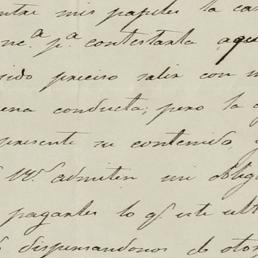 entre mis papeles la car
nc.ª p.ª contestarla aqu
sido preciso salir con m
ena conducta; pero la g
presente su contenido,
VV. admiten mi oblig
pagarles lo q.e este ult
dispensandonos de otor